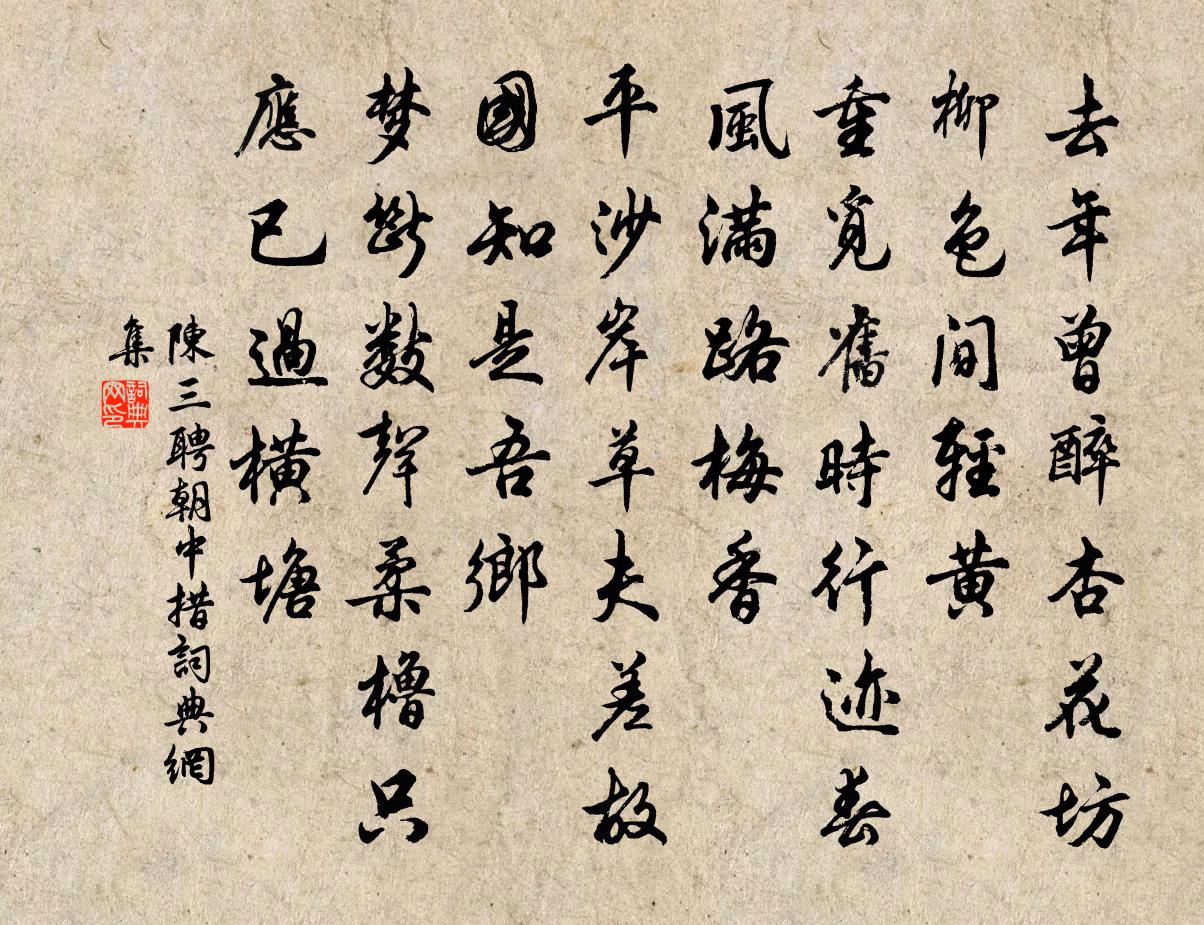 去年曾醉杏花坊
柳色間輕黄
重覓舊時行迹春
風滿路梅香
平沙岸草夫差故
國知是吾鄉
梦斷數聲柔櫓只
應已過橫塘
陳三聘朝中措詞典網
集
詞典
网印